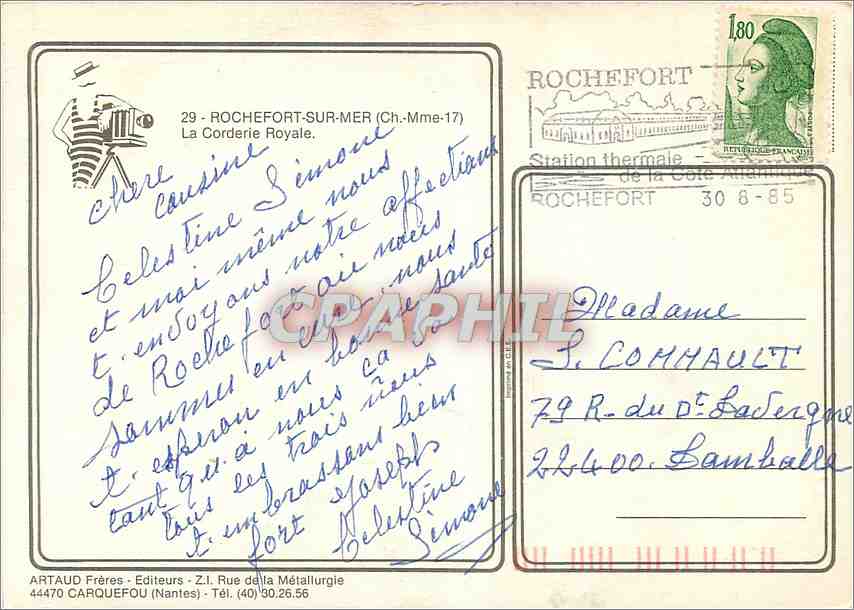 29 - ROCHEFORT-SUR-MER (Ch.-Mme-17)
La Corderie Royale.
chere
cousine
Celestine Simone
et moi même nous
t. envoyons notre affections
de Rochefort où nous
sommes en cure. nous
t. esperon en bonne santé
tant qu. à nous ca va
tous les trois nous
t. embrassons bien
fort Joseph
Celestine
Simone
ARTAUD Frères - Editeurs - Z.I. Rue de la Métallurgie
44470 CARQUEFOU (Nantes) - Tél. (40) 30.26.56
Imprimé en C.E.E.
1,80
REPUBLIQUE FRANCAISE
ROCHEFORT
Station thermale
de la Côte Atlantique
ROCHEFORT 30 8-85
Madame
S. COMMAULT
79 R. du Dr Lavergne
22400. Lamballe
CPARHIL